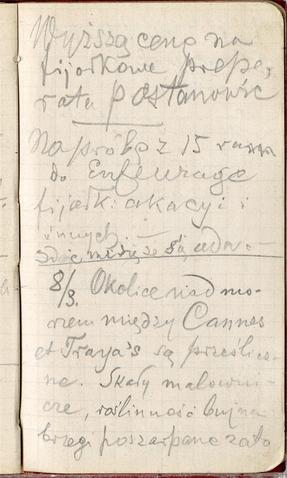 Wyższą cenę na
fijołkowe prepa,
rata postanowić
Na próbę z 15 ram
do Enfleurage
fijołk. akacyi i
innych. —
zdaje mi się że są ado. —
8/3. Okolice nad mo-
rzem między Cannes
et Traya's są prześlicz-
ne. Skały malowni-
cze, roślinność bujna
brzegi poszarpane zato